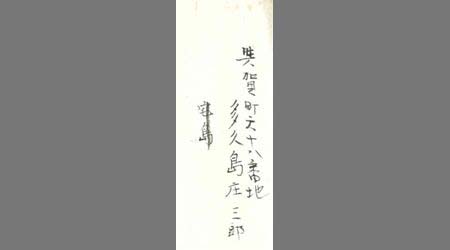 與賀町六十八番地
多久島庄三郎
宅島